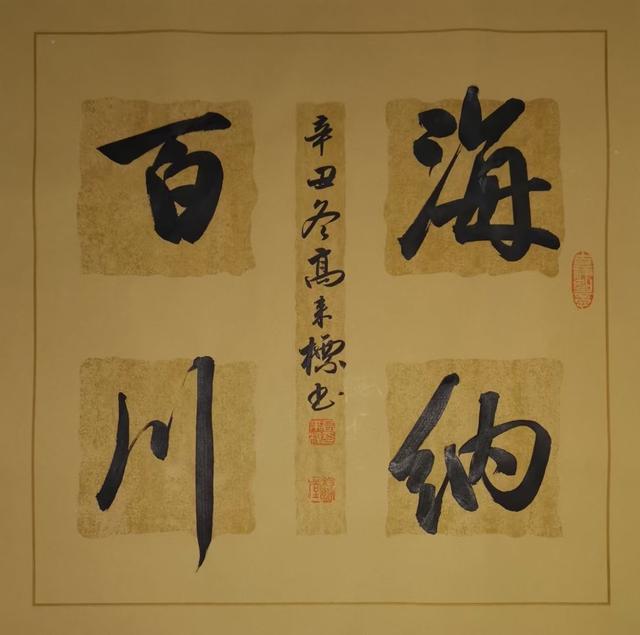 海納
百川
辛丑冬高来標书